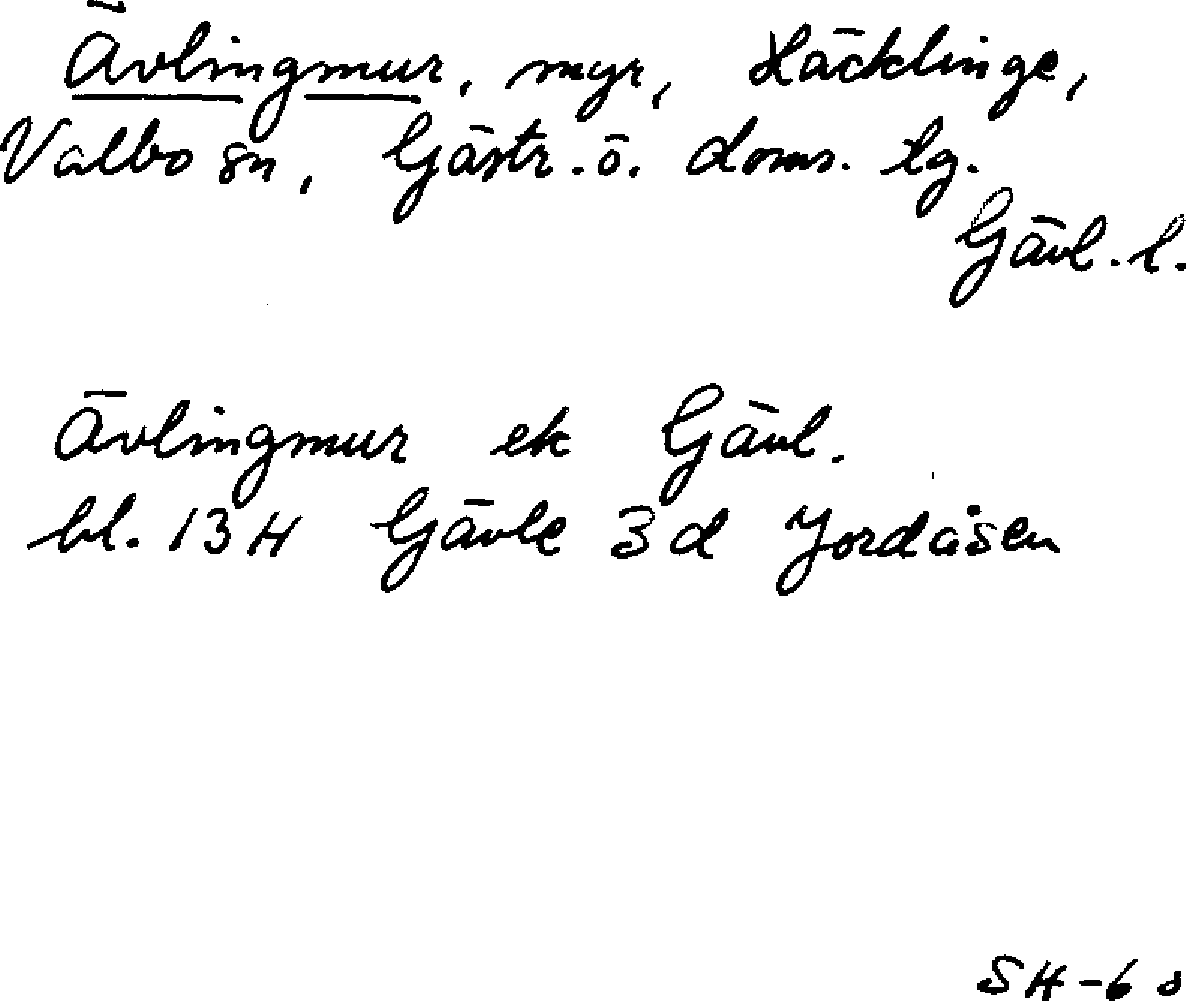 Ävlingmur, myr, Häcklinge,
Valbo sn, Gästr. ö. doms. tg.
Gävl. l.
Ävlingmur ek Gävl.
bl. 13 H Gävle 3 d Jordåsen
SH-6